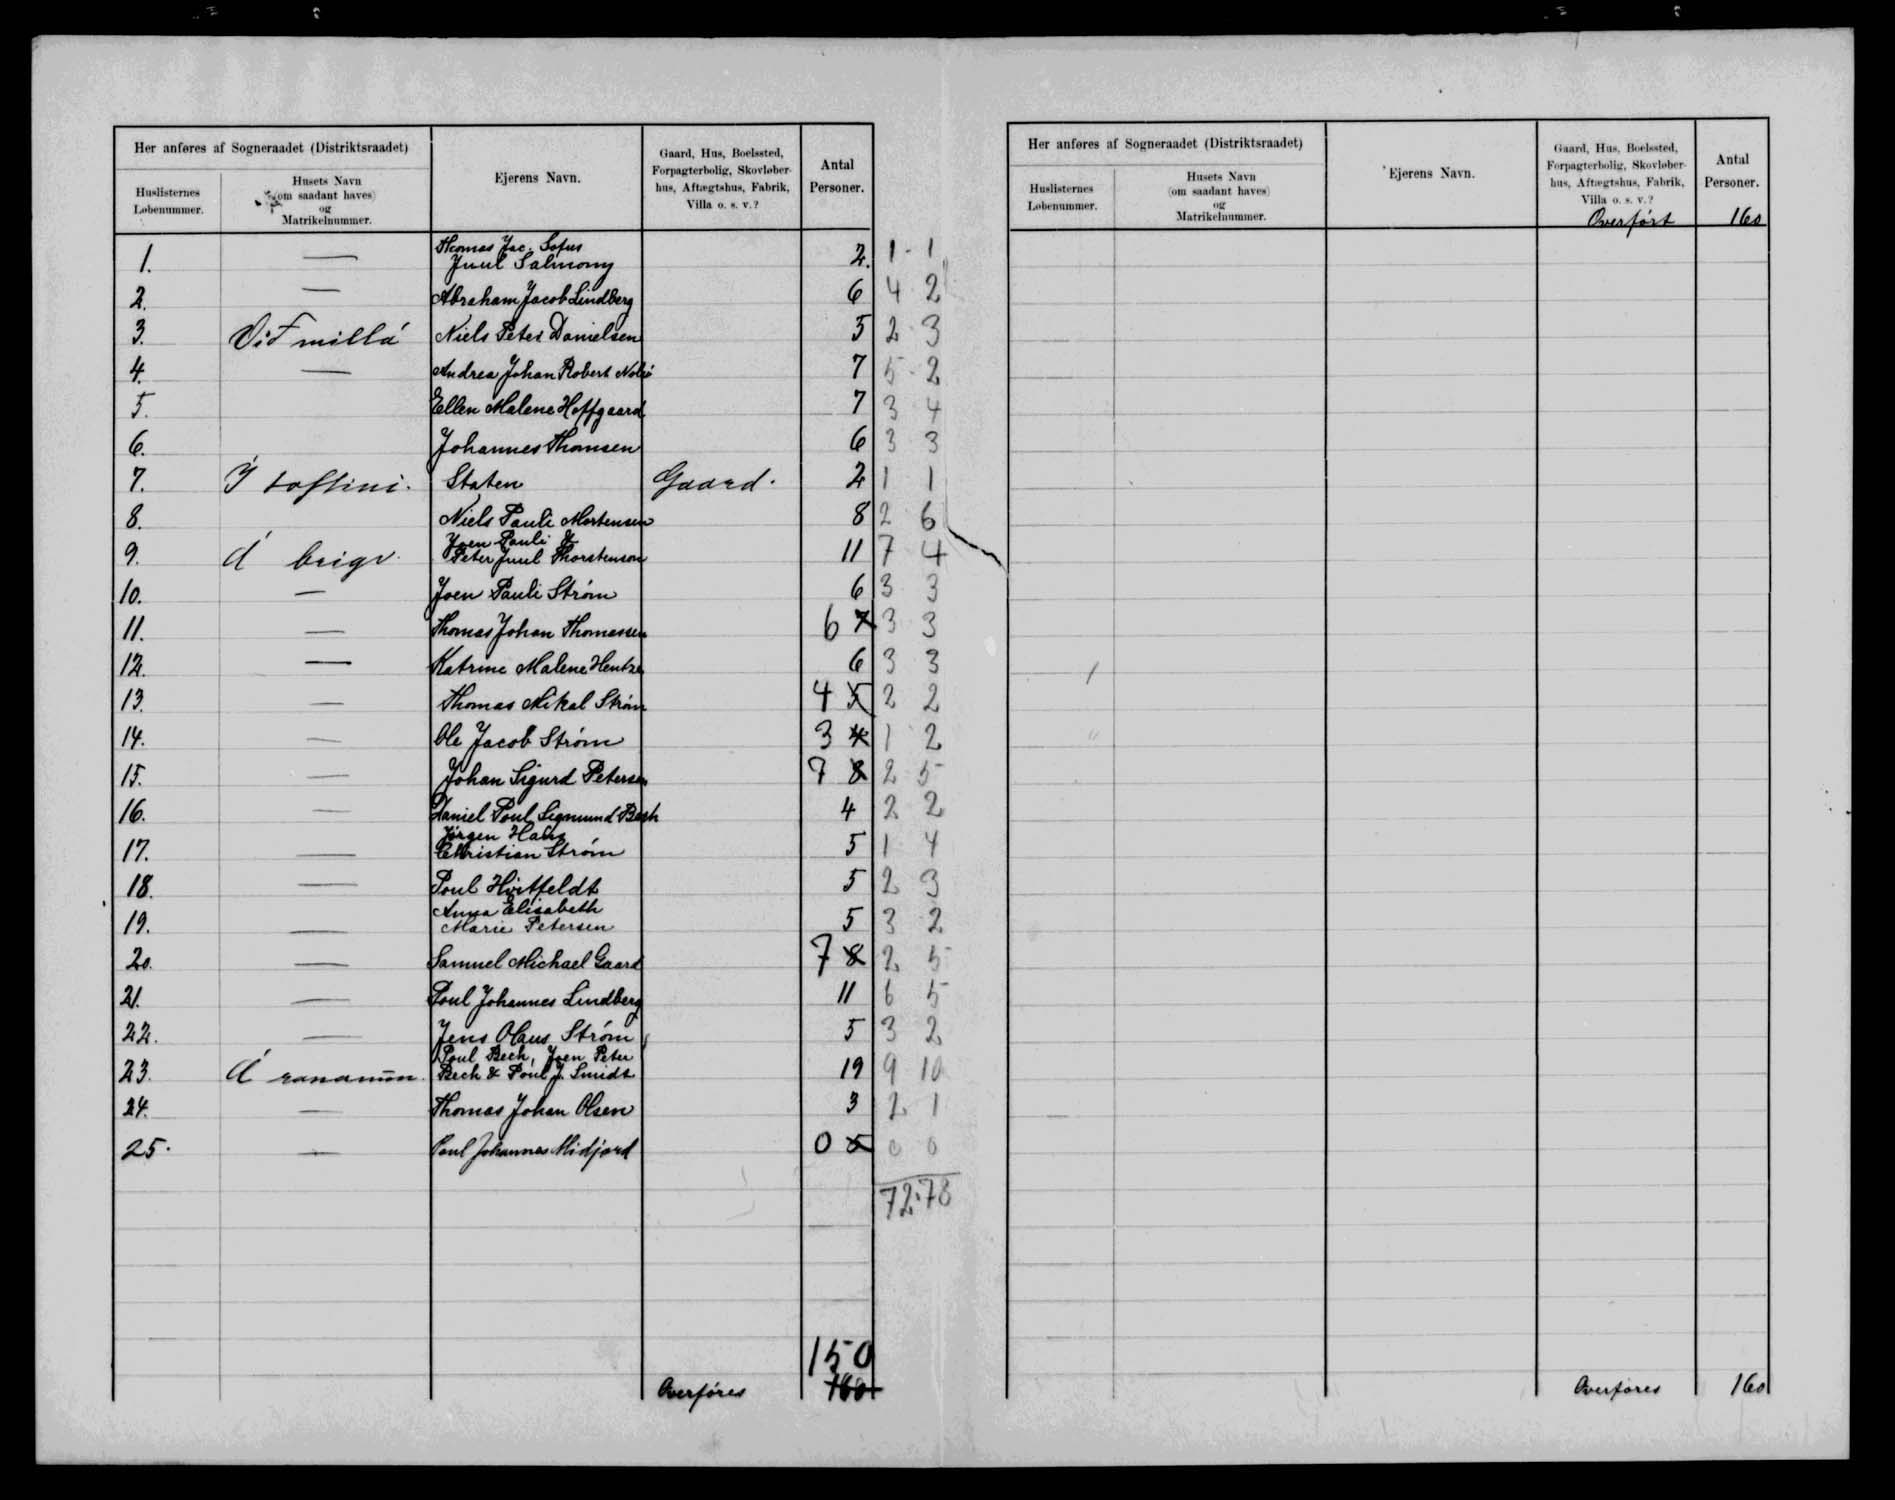 Her anføres af Sogneraadet (Distriktsraadet)
Huslisternes Løbenummer.
Husets Navn (om saadant haves) og Matrikelnummer.
Ejerens Navn.
Gaard, Hus, Boelssted, Forpagterbolig, Skovløberhus, Aftægtshus, Fabrik, Villa o. s. v.?
Antal Personer.
1. — Thomas Jac. Sofus Juul Salmony 2. 1 - 1
2. — Abraham Jacob Lindberg 6 4 2
3. Við millá Niels Peter Danielsen 5 2 3
4. — Andrea Johan Robert 7 5 - 2
5. Ellen Malene Hoffgaard 7 3 4
6. Johannes Thomsen 6 3 3
7. Í toftini. Staten Gaard. 2 1 1
8. Niels Pauli Mortensen 8 2 6
9. Á brigv. Joen Pauli & Peter Juul Thorstensen 11 7 4
10. — Joen Pauli Strøm 6 3 3
11. — Thomas Johan Thomassen 6 7 3 3
12. — Katrine Malene Hentze 6 3 3
13. — Thomas Mikal Strøm 4 5 2 2
14. — Ole Jacob Strøm 3 4 1 2
15. — Johan Sigurd Petersen 7 8 2 5
16. — Daniel Poul Sigmund Bech 4 2 2
17. — Jørgen Hans Christian Strøm 5 1 4
18. — Poul Hvitfeldt 5 2 3
19. — Anna Elisabeth Marie Petersen 5 3 2
20. — Samuel Michael Gaard 7 8 2 5
21. — Poul Johannes Lindberg 11 6 5
22. — Jens Olaus Strøm 5 3 2
23. Á Poul Bech, Joen Peter Bech & Poul J. Smidt 19 9 10
24. — Thomas Johan Olsen 3 2 1
25. — Poul Johannes Midjord 0 5 0 0
72.78
150
Overføres 160
Her anføres af Sogneraadet (Distriktsraadet)
Huslisternes Løbenummer.
Husets Navn (om saadant haves) og Matrikelnummer.
Ejerens Navn.
Gaard, Hus, Boelssted, Forpagterbolig, Skovløberhus, Aftægtshus, Fabrik, Villa o. s. v.?
Antal Personer.
Overført 160
Overføres 160